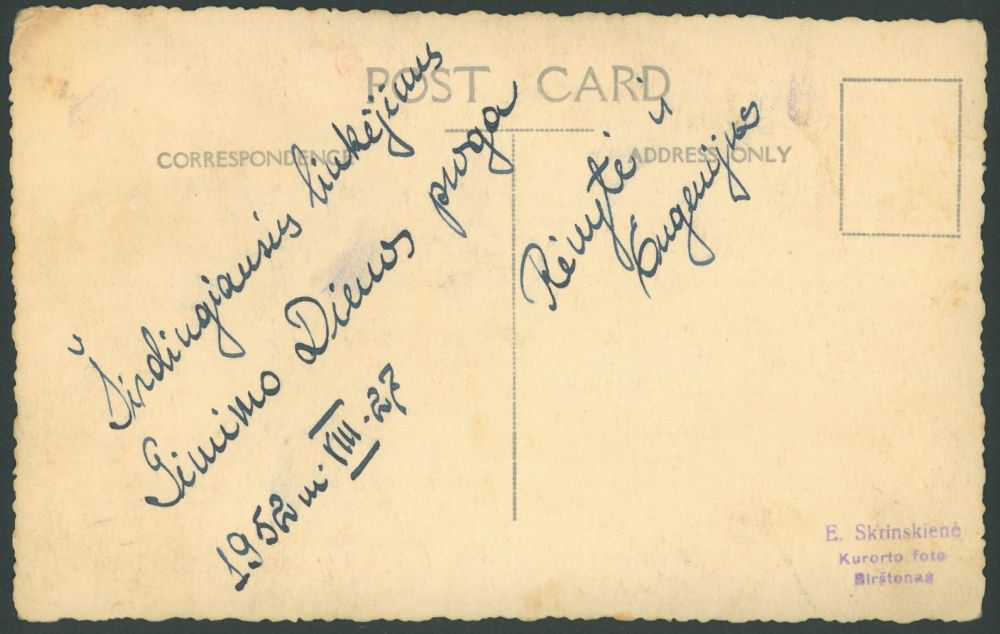 POST CARD
CORRESPONDENCE
ADDRESS ONLY
Širdingiausius linkėjimus
Gimimo Dienos proga
1952 m. VIII. 27
Rėnytė ir
Eugenijus
E. Skrinskienė
Kurorto foto
Birštonas